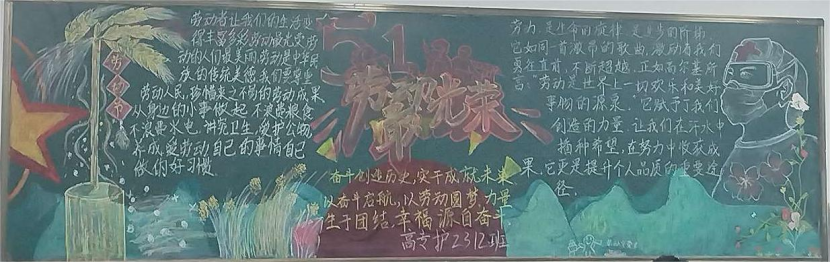 劳动者让我们的生活变
得丰富多彩劳动最光荣劳
动的人们最美丽劳动是中华民
族的传统美德我们要尊重
劳动人民珍惜来之不易的劳动成果
从身边的小事做起 不浪费粮食
不浪费水电 讲究卫生 爱护公物
养成爱劳动自己的事情自己
做们好习惯
劳动节
51
劳动最光荣
奋斗创造历史,实干成就未来
以奋斗启航,以劳动圆梦,力量
生于团结,幸福源自奋斗.
高专护2312班
劳力,是生命的旋律,是进步的阶梯,
它如同一首激昂的歌曲,激励着我们
勇往直前,不断超越,正如高尔基所
言:"劳动是世界上一切欢乐和美好
事物的源泉."它赋予了我们
创造的力量,让我们在汗水中
播种希望,在努力中收获成
果,它更是提升个人品质的重要途
径.